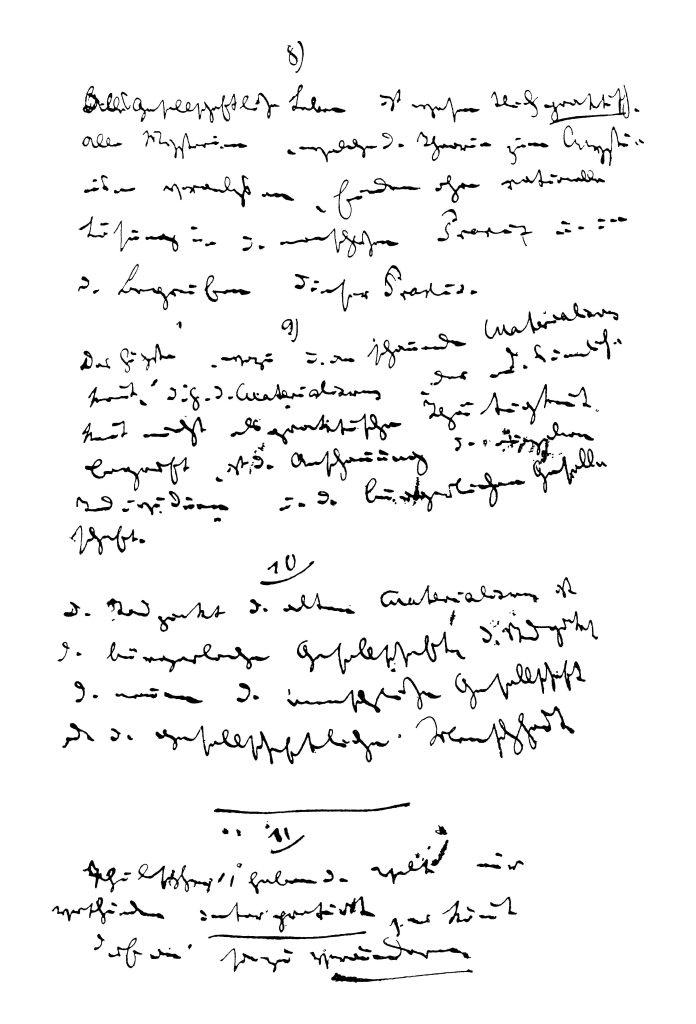 8)
Alles gesellschaftliche Leben ist wesentlich praktisch.
Alle Mysterien, welche d. Theorie zum Mysti-
cismus veranlassen, finden ihre rationelle
Lösung in d. menschlichen Praxis u. in
d. Begreifen dieser Praxis.
9)
Das Höchste, wozu d. anschauende Materialismus
kommt, d.h. d. Materialismus der d. Sinnlich-
keit nicht als praktische Thätigkeit
begreift, ist d. Anschauung d. einzelnen
Individuen u. d. bürgerlichen Gesell-
schaft.
10
D. Standpunkt d. alten Materialismus ist
d. bürgerliche Gesellschaft, d. Standpunkt
d. neuen d. menschliche Gesellschaft
od. d. gesellschaftliche Menschheit
11
Philosophen haben d. Welt nur
verschieden interpretirt es kömmt
drauf an sie zu verändern